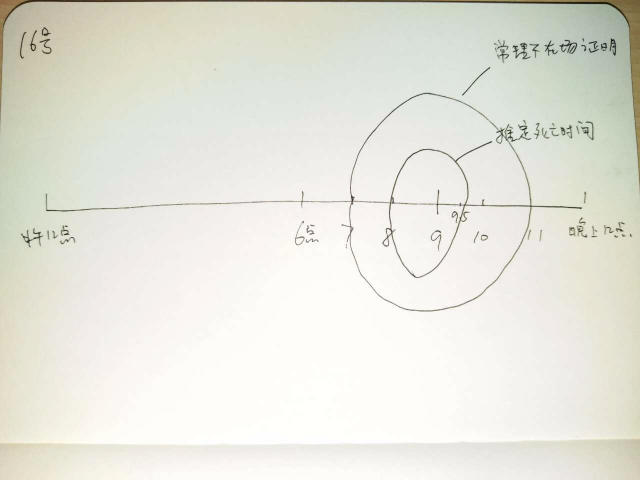 16号
常理不在场证明
推定死亡时间
中午12点
6点
7
8
9
9.5
10
11
晚上12点